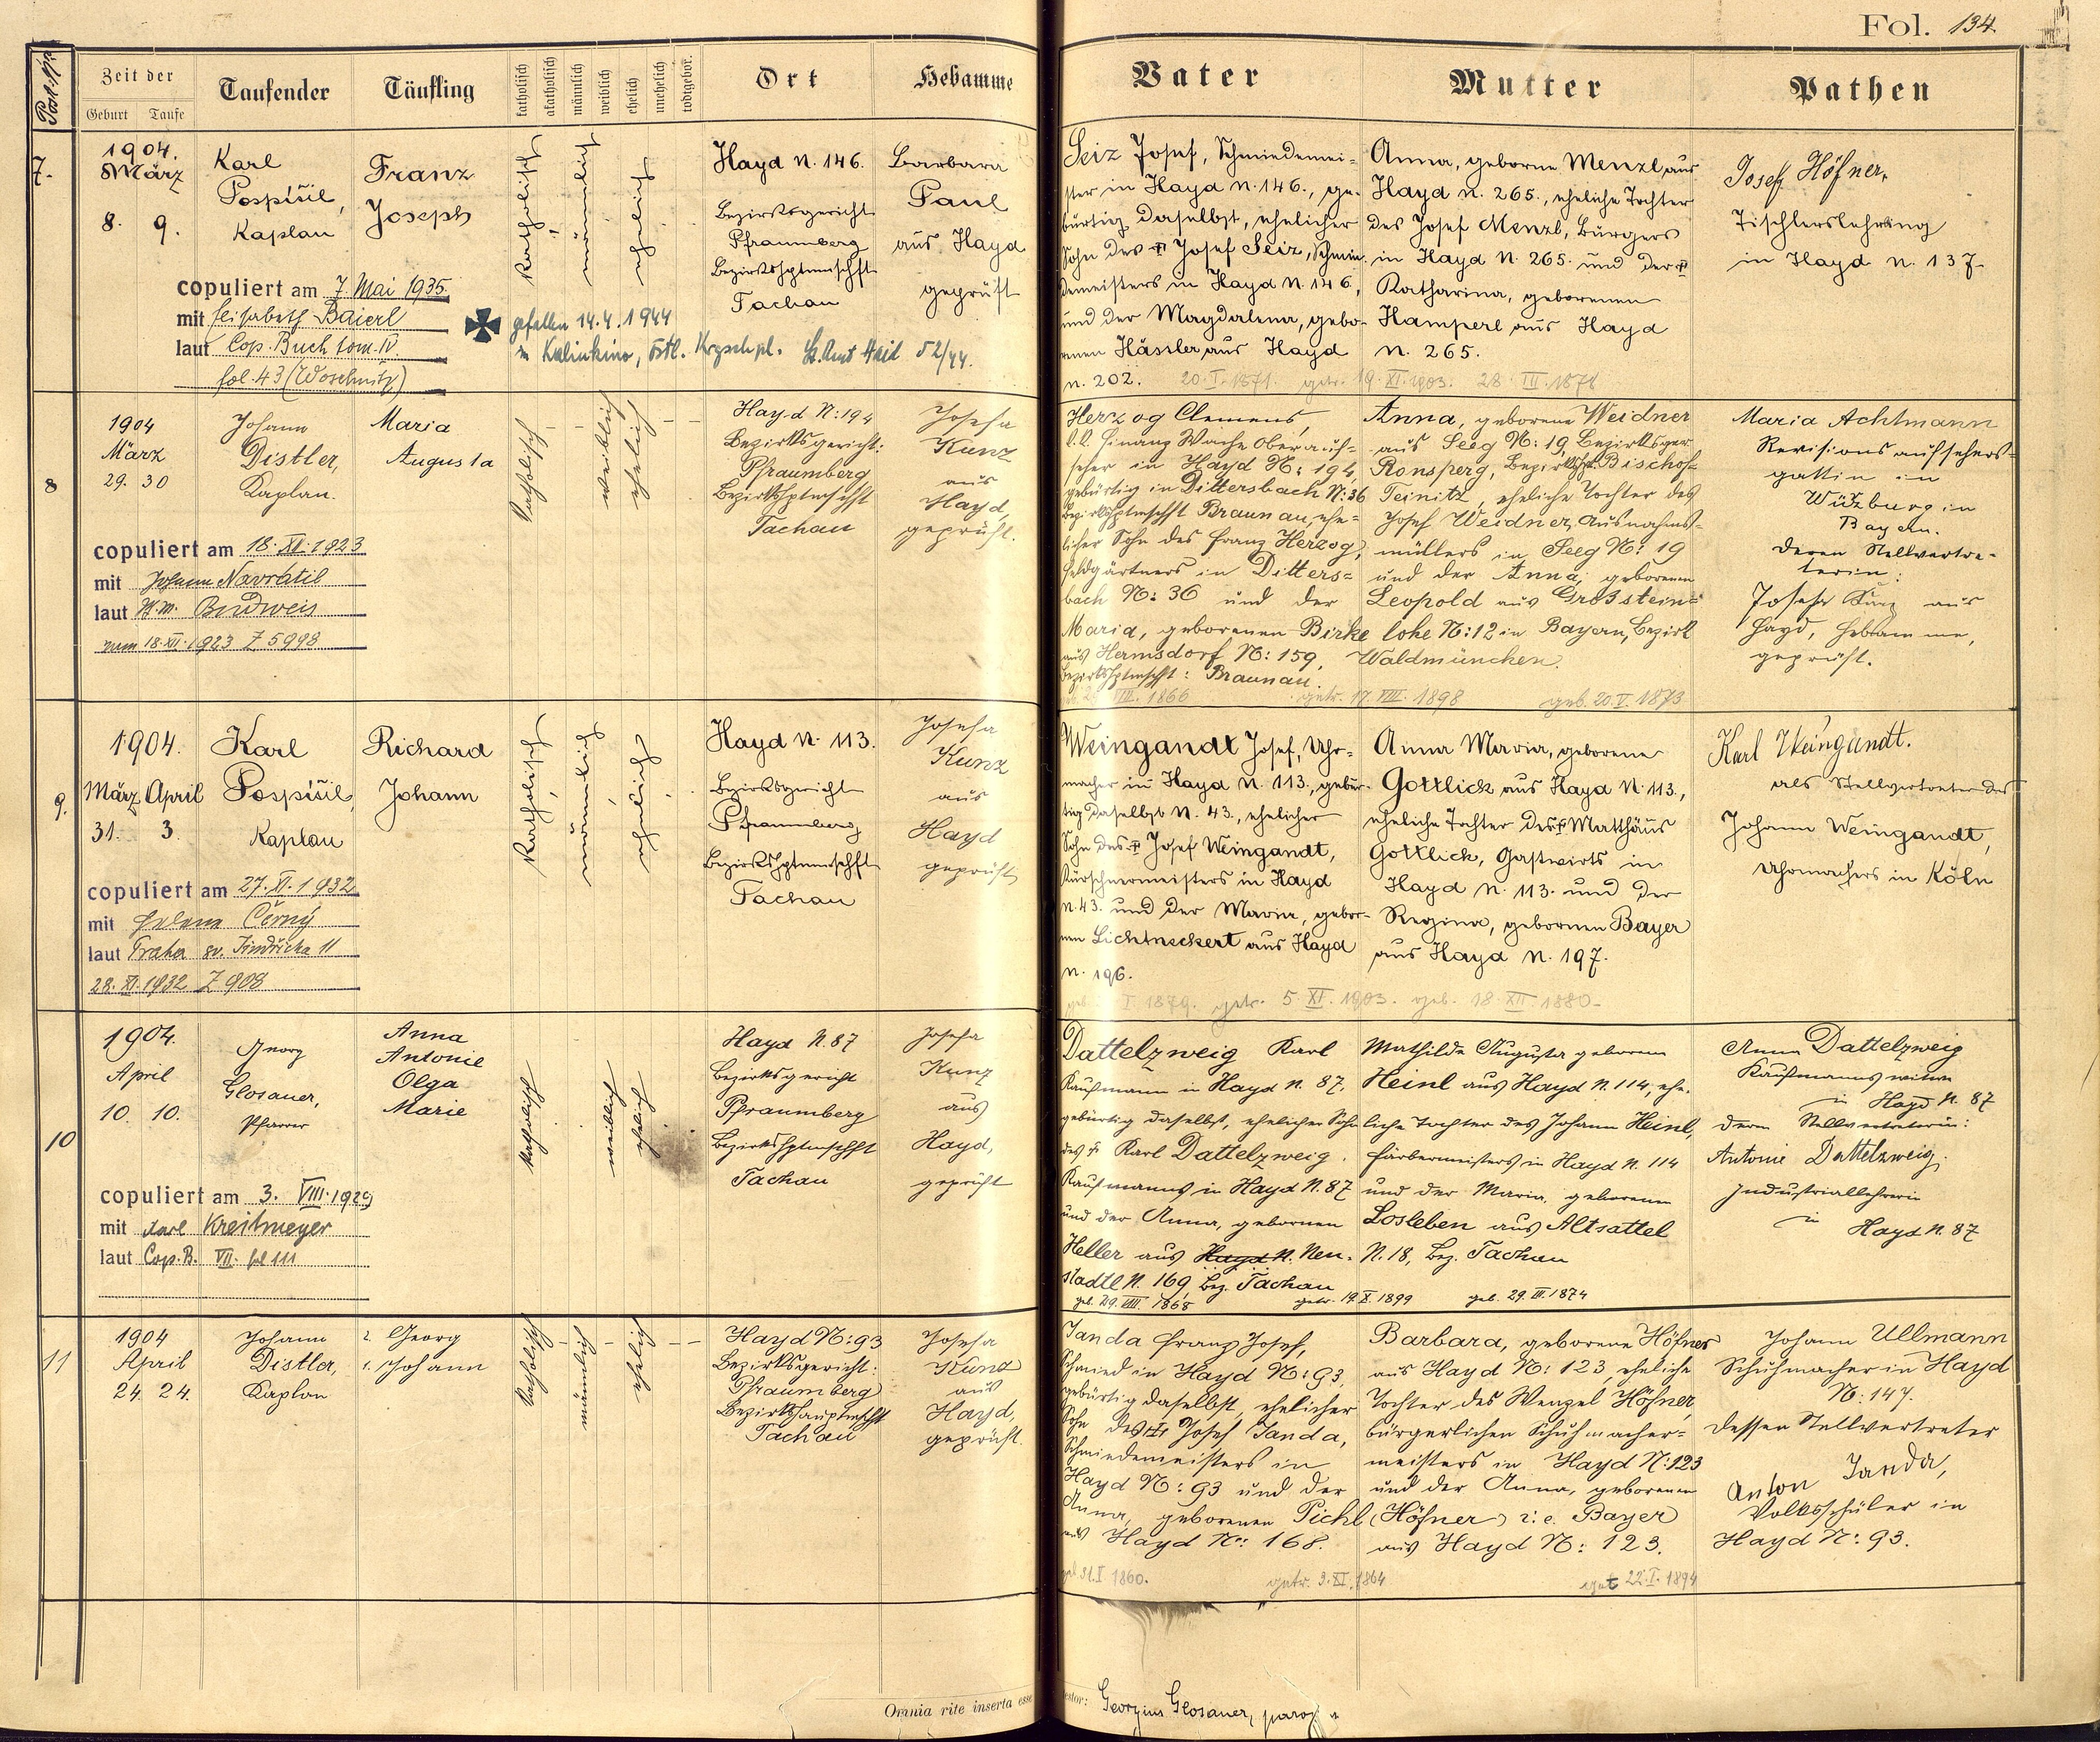 Fol. 134
Post-Nro
Zeit der
Geburt Taufe
Taufender
Täufling
katholisch
akatholisch
männlich
weiblich
ehelich
unehelich
todtgebor.
Ort
Hebamme
Vater
Mutter
Pathen
7.
1904.
März
8. 9.
Karl
Pospíšil,
Kaplan
Franz
Joseph
katholisch
männlich
ehelich
Hayd N. 146.
Bezirksgericht
Pfraumberg
Bezirkshptmschft
Tachau
Barbara
Paul
aus Hayd
geprüft
Seiz Josef, Schmiedemei-
ster in Hayd N. 146., ge-
bürtig daselbst, ehelicher
Sohn des † Josef Seiz, Schmie-
demeisters in Hayd N. 146,
und der Magdalena, gebo-
renen Hässler aus Hayd
n. 202.
Anna, geborne Menzl aus
Hayd N. 265., eheliche Tochter
des Josef Menzl, Bürgers
in Hayd N. 265. und der †
Katharina, geborenen
Hamperl aus Hayd
N. 265.
20. I. 1871. getr. 19. XI. 1903. 28. III. 1878
Josef Höfner,
Tischlerslehrling
in Hayd N. 137.
copuliert am 7. Mai 1935
mit Elisabeth Baierl
laut Cop. Buch tom. IV.
fol. 43 (Woschnitz)
gefallen 14.4.1944
in Kalinkino, östl. St. Amt Haid 52/44.
8
1904
März
29. 30
Johann
Distler,
Kaplan.
Maria
Augusta
katholisch
weiblich
ehelich
Hayd N: 194
Bezirksgericht:
Pfraumberg
Bezirkshptmschft
Tachau
Josefa
Kunz
aus
Hayd,
geprüft.
Herzog Clemens,
k.k. Finanz Wache Oberauf-
seher in Hayd N: 194,
gebürtig in Dittersbach N: 36
Bezirkshptmschft Braunau, ehe-
licher Sohn des Franz Herzog,
Feldgärtners in Ditters-
bach N: 36 und der
Maria, geborenen Birke
aus Hermsdorf N: 159,
Bezirkshptmschft: Braunau.
Anna, geborene Weidner
aus Seeg N: 19, Bezirksger.
Ronsperg, Bezirkshpt. Bischof-
Teinitz, eheliche Tochter des
Josef Weidner, Ausnahms-
müllers in Seeg N: 19
und der Anna, geborenen
Leopold aus Großstein-
lohe N: 12 in Bayern, Bezirk
Waldmünchen.
VIII. 1866 getr. 17. VIII. 1898 geb. 20. V. 1873
Maria Achtmann
Revisionsaufsehers-
gattin in
Würzburg in
Bayern.
deren Stellvertre-
terin:
Josefa Kunz aus
Hayd, Hebamme,
geprüft.
copuliert am 18. XII. 1923
mit Johann Navrátil
laut Budweis
vom 18. XII. 1923 Z 5998
9.
1904.
März April
31. 3.
Karl
Pospíšil,
Kaplan
Richard
Johann
katholisch
männlich
ehelich
Hayd N. 113.
Bezirksgericht
Pfraumberg
Bezirkshptmschft
Tachau
Josefa
Kunz
aus
Hayd
geprüft
Weingandt Josef, Uhr-
macher in Hayd N. 113., gebür-
tig daselbst N. 43., ehelicher
Sohn des † Josef Weingandt,
Kürschnermeisters in Hayd
N. 43. und der Maria, gebor-
nen Lichtneckert aus Hayd
N. 196.
Anna Maria, geborene
Gottlick aus Hayd N. 113.,
eheliche Tochter des † Matthäus
Gottlick, Gastwirts in
Hayd N. 113. und der
Regina, gebornen Bayer
aus Hayd N. 197.
I. 1879. getr. 5. XI. 1903. geb. 18. XII. 1880.
Karl Weingandt.
als Stellvertreter des
Johann Weingandt,
Uhrmachers in Köln
copuliert am 27. XI. 1932
mit Helena Černý
laut Praha sv. Jindřicha 11
28. XI. 1932 Z 908
10
1904.
April
10. 10.
Georg
Glosauer,
Pfarrer
Anna
Antonie
Olga
Marie
katholisch
weiblich
ehelich
Hayd N. 87
Bezirksgericht
Pfraumberg
Bezirkshptmschft
Tachau
Josefa
Kunz
aus
Hayd,
geprüft
Dattelzweig Karl
Kaufmann in Hayd N. 87,
gebürtig daselbst, ehelicher Sohn
des † Karl Dattelzweig,
Kaufmanns in Hayd N. 87
und der Anna, gebornen
Heller aus Hayd N. Neu-
stadtl N. 169, Bez. Tachau
Mathilde Augusta geborene
Heinl aus Hayd N. 114, ehe-
liche Tochter des Johann Heinl,
Färbermeisters in Hayd N. 114
und der Maria, geborenen
Losleben aus Altsattel
N. 18, Bez. Tachau
geb. 29. VIII. 1868 getr. 19. X. 1899 geb. 29. III. 1874
Anna Dattelzweig
Kaufmanns witwe
in Hayd N. 87
deren Stellvertreterin:
Antonie Dattelzweig.
Industriallehrerin
in
Hayd N. 87
copuliert am 3. VIII. 1929
mit Karl Kreitmeyer
laut Cop. B. VII. fol 111
11
1904
April
24. 24.
Johann
Distler,
Kaplan
2. Georg
1. Johann
katholisch
männlich
ehelich
Hayd N: 93
Bezirksgericht:
Pfraumberg
Bezirkshauptmschft
Tachau
Josefa
Kunz
aus
Hayd,
geprüft.
Janda Franz Josef,
Schmied in Hayd N: 93,
gebürtig daselbst, ehelicher
Sohn des † Josef Janda,
Schmiedemeisters in
Hayd N: 93 und der
Anna, geborenen Pickl
aus Hayd N: 168.
Barbara, geborene Höfner
aus Hayd N: 123, eheliche
Tochter des Wenzel Höfner,
bürgerlichen Schuhmacher-
meisters in Hayd N: 123
und der Anna, geborenen
(Höfner) i. e. Bayer
aus Hayd N: 123.
geb 31. I 1860. getr. 3. XI. 1864 22. I. 1894
Johann Ullmann
Schuhmacher in Hayd
N: 147.
dessen Stellvertreter
Anton Janda,
Volksschüler in
Hayd N: 93.
Omnia rite inserta esse testor: Georgius Glosauer,